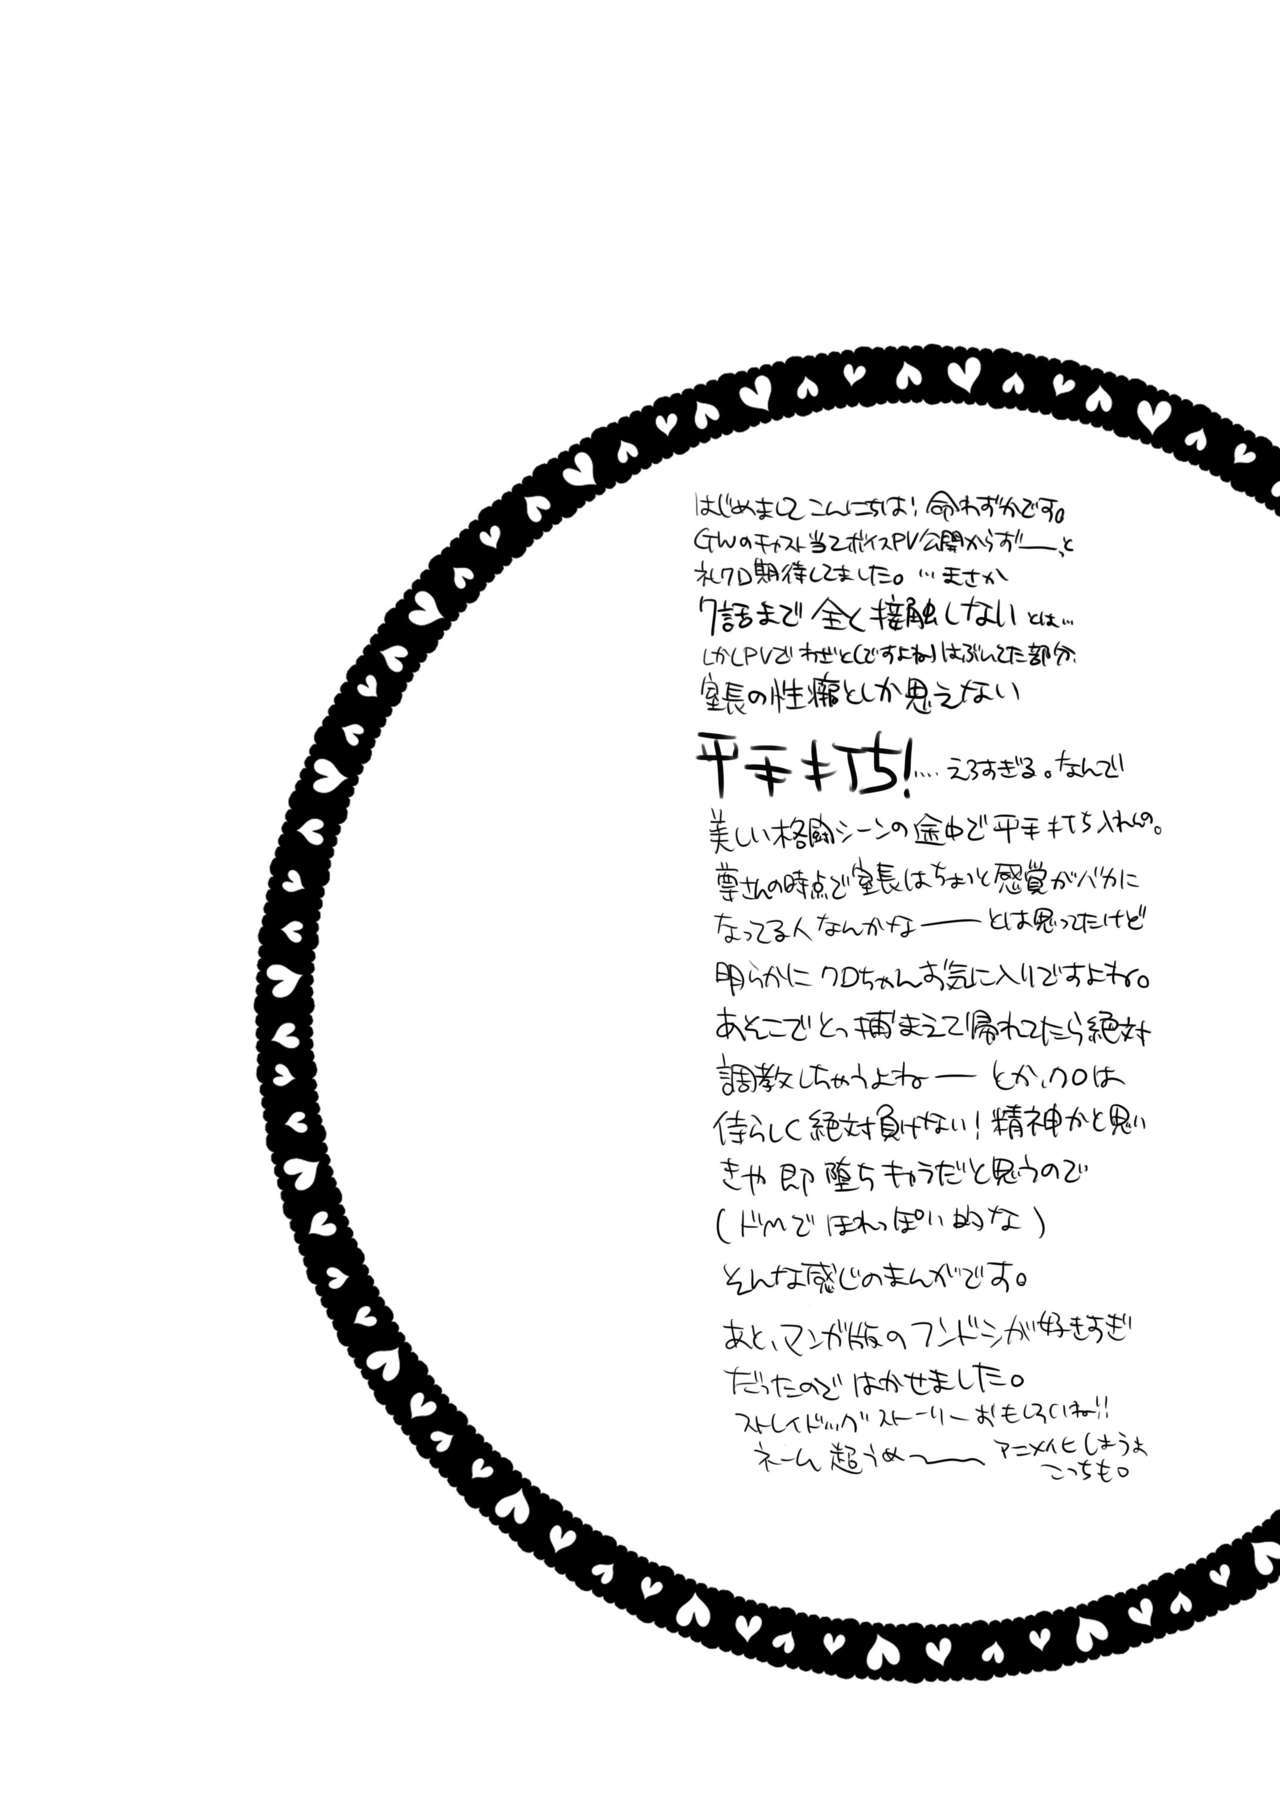 はじめまして こんにちは! 命わずかです。
GWのキャスト当てボイスPV公開からずーーっと
礼クロ期待してました。…まさか
7話まで全く接触しないとは…
しかしPVでわざと(ですよね)はぶいてた部分、
室長の性癖としか思えない
平手打ち!…. えろすぎる。なんで
美しい格闘シーンの途中で平手打ち入れんの。
尊さんの時点で室長はちょっと感覚がバカに
なってる人なんかなーーとは思ってたけど
明らかにクロちゃんお気に入りですよね。
あそこでとっ捕まえて帰れてたら絶対
調教しちゃうよねーー とか、クロは
侍らしく絶対負けない!精神かと思い
きや 即堕ちキャラだと思うので
(ドMでほれっぽい的な)
そんな感じのまんがです。
あと、マンガ版のフンドシが好きすぎ
だったのではかせました。
ストレイドッグストーリーおもしろいね!!
ネーム超うめ〜〜 アニメイヒしようよ
こっちも。